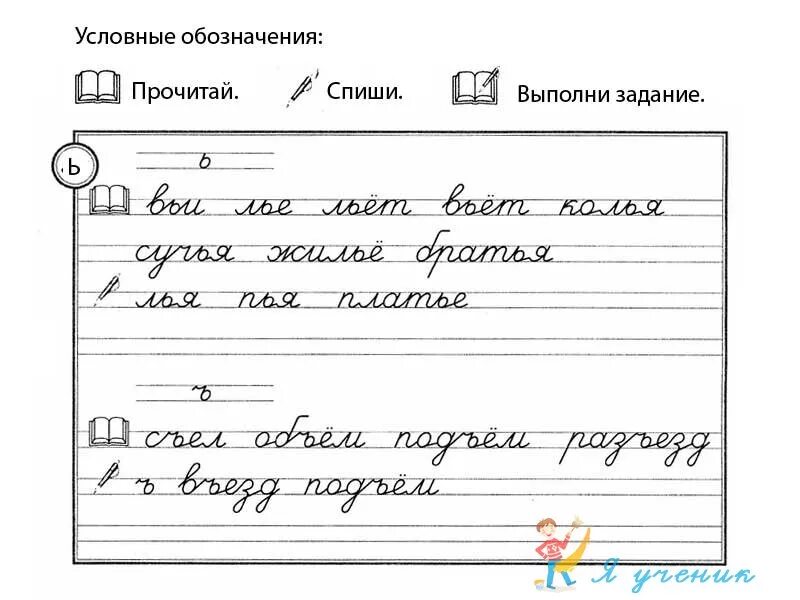 Условные обозначения:
Прочитай. Спиши. Выполни задание.
ь
Ь
вьи лье льёт вьёт колья
сучья жильё братья
лья пья платье
ъ
съел объём подъём разъезд
ъ въезд подъём
Я ученик